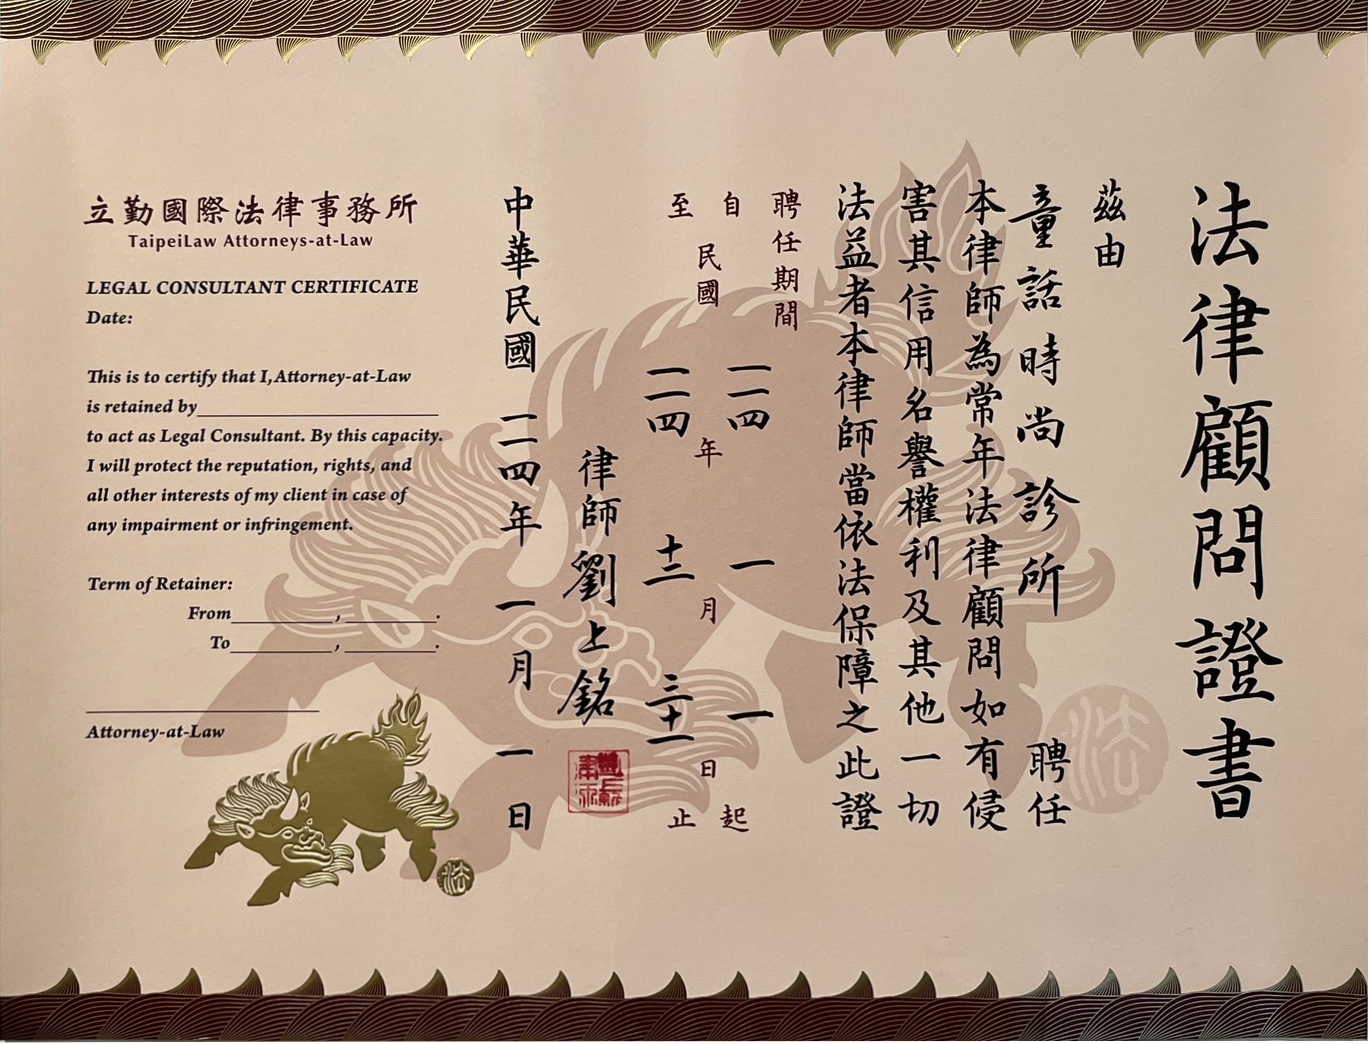 法律顧問證書
茲由
童話時尚診所 聘任
本律師為常年法律顧問如有侵
害其信用名譽權利及其他一切
法益者本律師當依法保障之此證
聘任期間
自 民國 一一四 年 一 月 一 日 起
至 一一四 十二 三十一 止
律師 劉上銘
中華民國 一一四 年 一 月 一 日
立勤國際法律事務所
TaipeiLaw Attorneys-at-Law
LEGAL CONSULTANT CERTIFICATE
Date:
This is to certify that I,Attorney-at-Law
is retained by
to act as Legal Consultant. By this capacity.
I will protect the reputation, rights, and
all other interests of my client in case of
any impairment or infringement.
Term of Retainer:
From , .
To , .
Attorney-at-Law
法
法